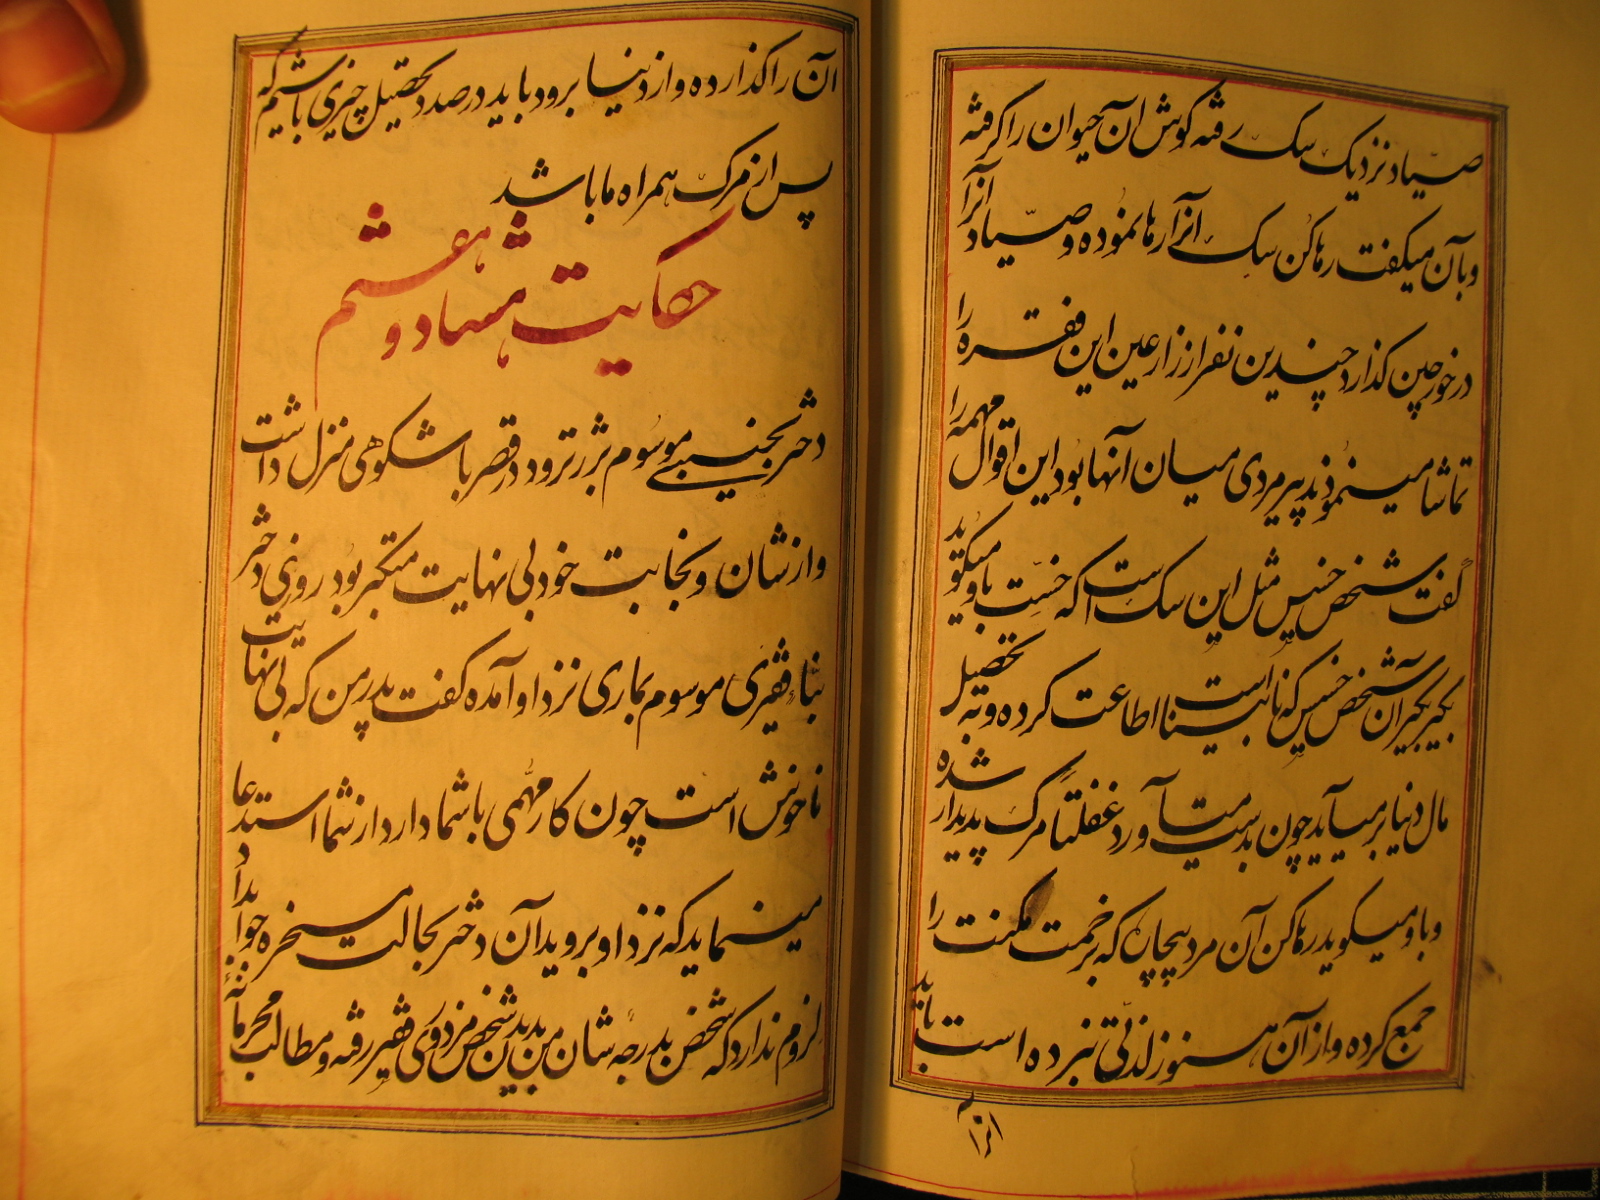 صیاد نزدیک سک رفته کوش ان حیوان را کرفته
و بآن میکفت رها کن سک آنرا رها نموده و صیاد آنرا
در خورجین کذارد چندین نفر از زارعین این فقره را
تماشا مینمودند پیرمردی میان آنها بود این اقوال مهمه را
گفت شخص خسیس مثل این سک است که خست باو میکوید
بکیر بکیر آن شخص خسیس که نابیناست اطاعت کرده و به تحصیل
مال دنیا بر میآید چون بدست میآورد غفلتاً مرک پدیدار شده
و باو میکوید رها کن آن مرد بیچاره که بزحمت مکنت را
جمع کرده و از آن هنوز لذتی نبرده است باید
انرا
آن را کذارده و از دنیا برود باید در صدد تحصیل چیزی باشیم که
پس از مرک همراه ما باشد
حکایت هشتاد و هفتم
دختر نجیبی موسوم به ژرترود در قصر باشکوهی منزل داشت
و از شان و نجابت خود بی نهایت متکبر بود روزی دختر
بناء فقیری موسوم بماری نزد او آمده کفت پدر من که بی نهایت
ناخوش است چون کار مهمی با شما دارد از شما استدعا
مینماید که نزد او بروید آن دختر بحالت مسخره جواب داد
لزوم ندارد که شخص بدرجه شان من بدیدن شخص مزدوری فقیر رفته و مطالب محرمانه